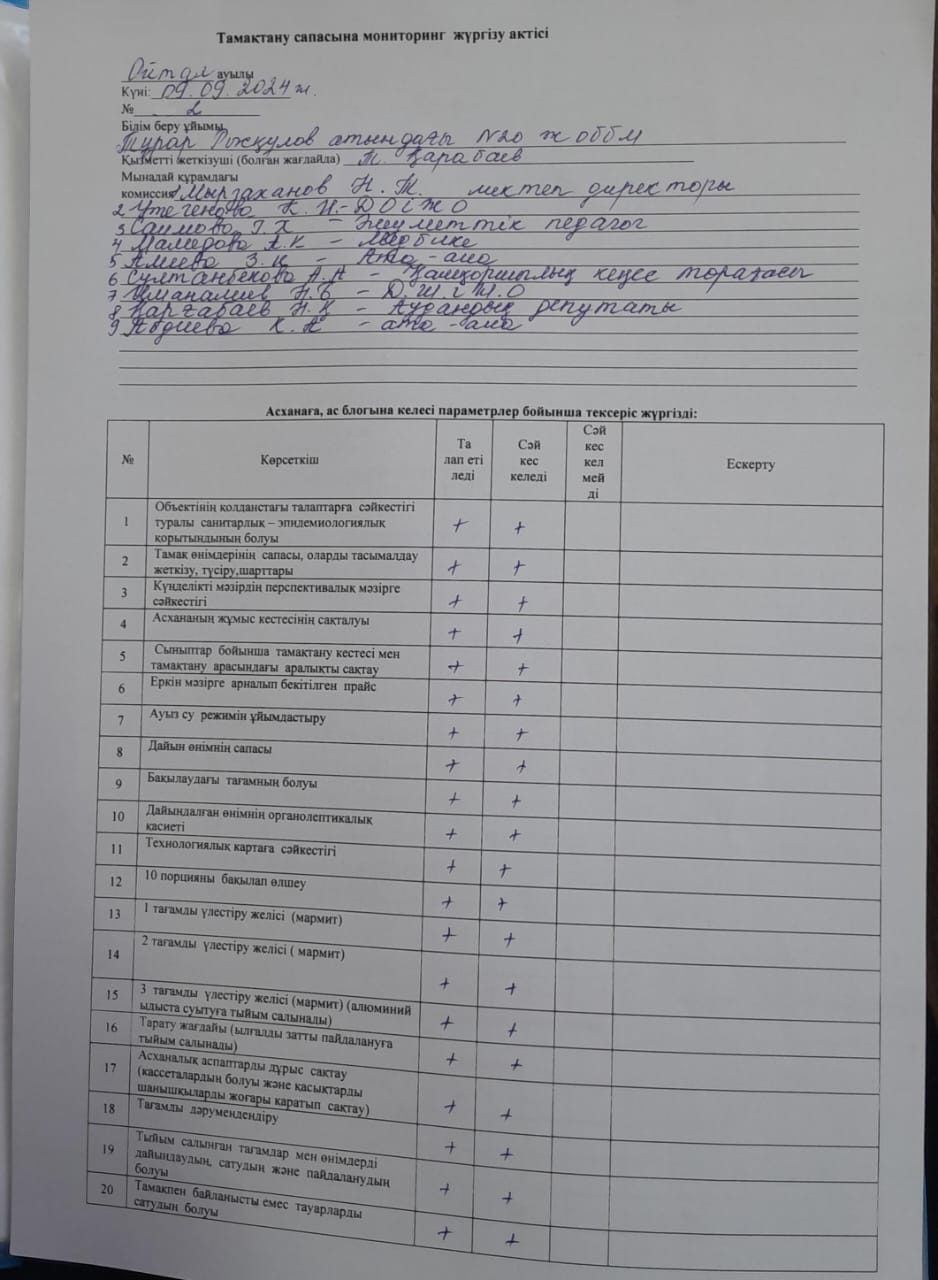 Тамақтану сапасына мониторинг жүргізу актісі
Ойтал ауылы
Күні: 09.09.2024 ж.
№ 2
Білім беру ұйымы
Тұрар Рысқұлов атындағы №20 ж оббм
Қызметті жеткізуші (болған жағдайда) Т. Қарабаев
Мынадай құрамдағы
комиссия: 1 Мырзаханов Н. Т. мектеп директоры
2 Утегенова К. И - ДОІЖО
3 Саимова Г. Х - Әлеуметтік педагог
4 Мамедова А. К - Медбике
5 Алиева З. К - Ата - ана
6 Султанбекова А. А - Қамқоршылық кеңес төрағасы
7 Иманалиев Н. Б - Д Ж І Ж О
8 Қарғабаев Н. К - Аудандық депутаты
9 Абдиева К. А - ата - ана
Асханаға, ас блогына келесі параметрлер бойынша тексеріс жүргізді:
№ Көрсеткіш Та лап еті леді Сәй кес келеді Сәй кес кел мей ді Ескерту
1 Объектінің қолданстағы талаптарға сәйкестігі + +
туралы санитарлық – эпидемиологиялық
қорытындының болуы
2 Тамақ өнімдерінің сапасы, оларды тасымалдау + +
жеткізу, түсіру,шарттары
3 Күнделікті мәзірдің перспективалық мәзірге + +
сәйкестігі
4 Асхананың жұмыс кестесінің сақталуы + +
5 Сыныптар бойынша тамақтану кестесі мен + +
тамақтану арасындағы аралықты сақтау
6 Еркін мәзірге арналып бекітілген прайс + +
7 Ауыз су режимін ұйымдастыру + +
8 Дайын өнімнің сапасы + +
9 Бақылаудағы тағамның болуы + +
10 Дайындалған өнімнің органолептикалық + +
қасиеті
11 Технологиялық картаға сәйкестігі + +
12 10 порцияны бақылап өлшеу + +
13 1 тағамды үлестіру желісі (мармит) + +
14 2 тағамды үлестіру желісі ( мармит) + +
15 3 тағамды үлестіру желісі (мармит) (алюминий + +
ыдыста суытуға тыйым салынады)
16 Тарату жағдайы (ылғалды затты пайдалануға + +
тыйым салынады)
17 Асханалық аспаптарды дұрыс сақтау + +
(кассеталардың болуы және қасықтарды
шанышқыларды жоғары қаратып сақтау)
18 Тағамды дәрумендендіру + +
19 Тыйым салынған тағамдар мен өнімдерді + +
дайындаудың, сатудың және пайдаланудың
болуы
20 Тамақпен байланысты емес тауарларды + +
сатудың болуы